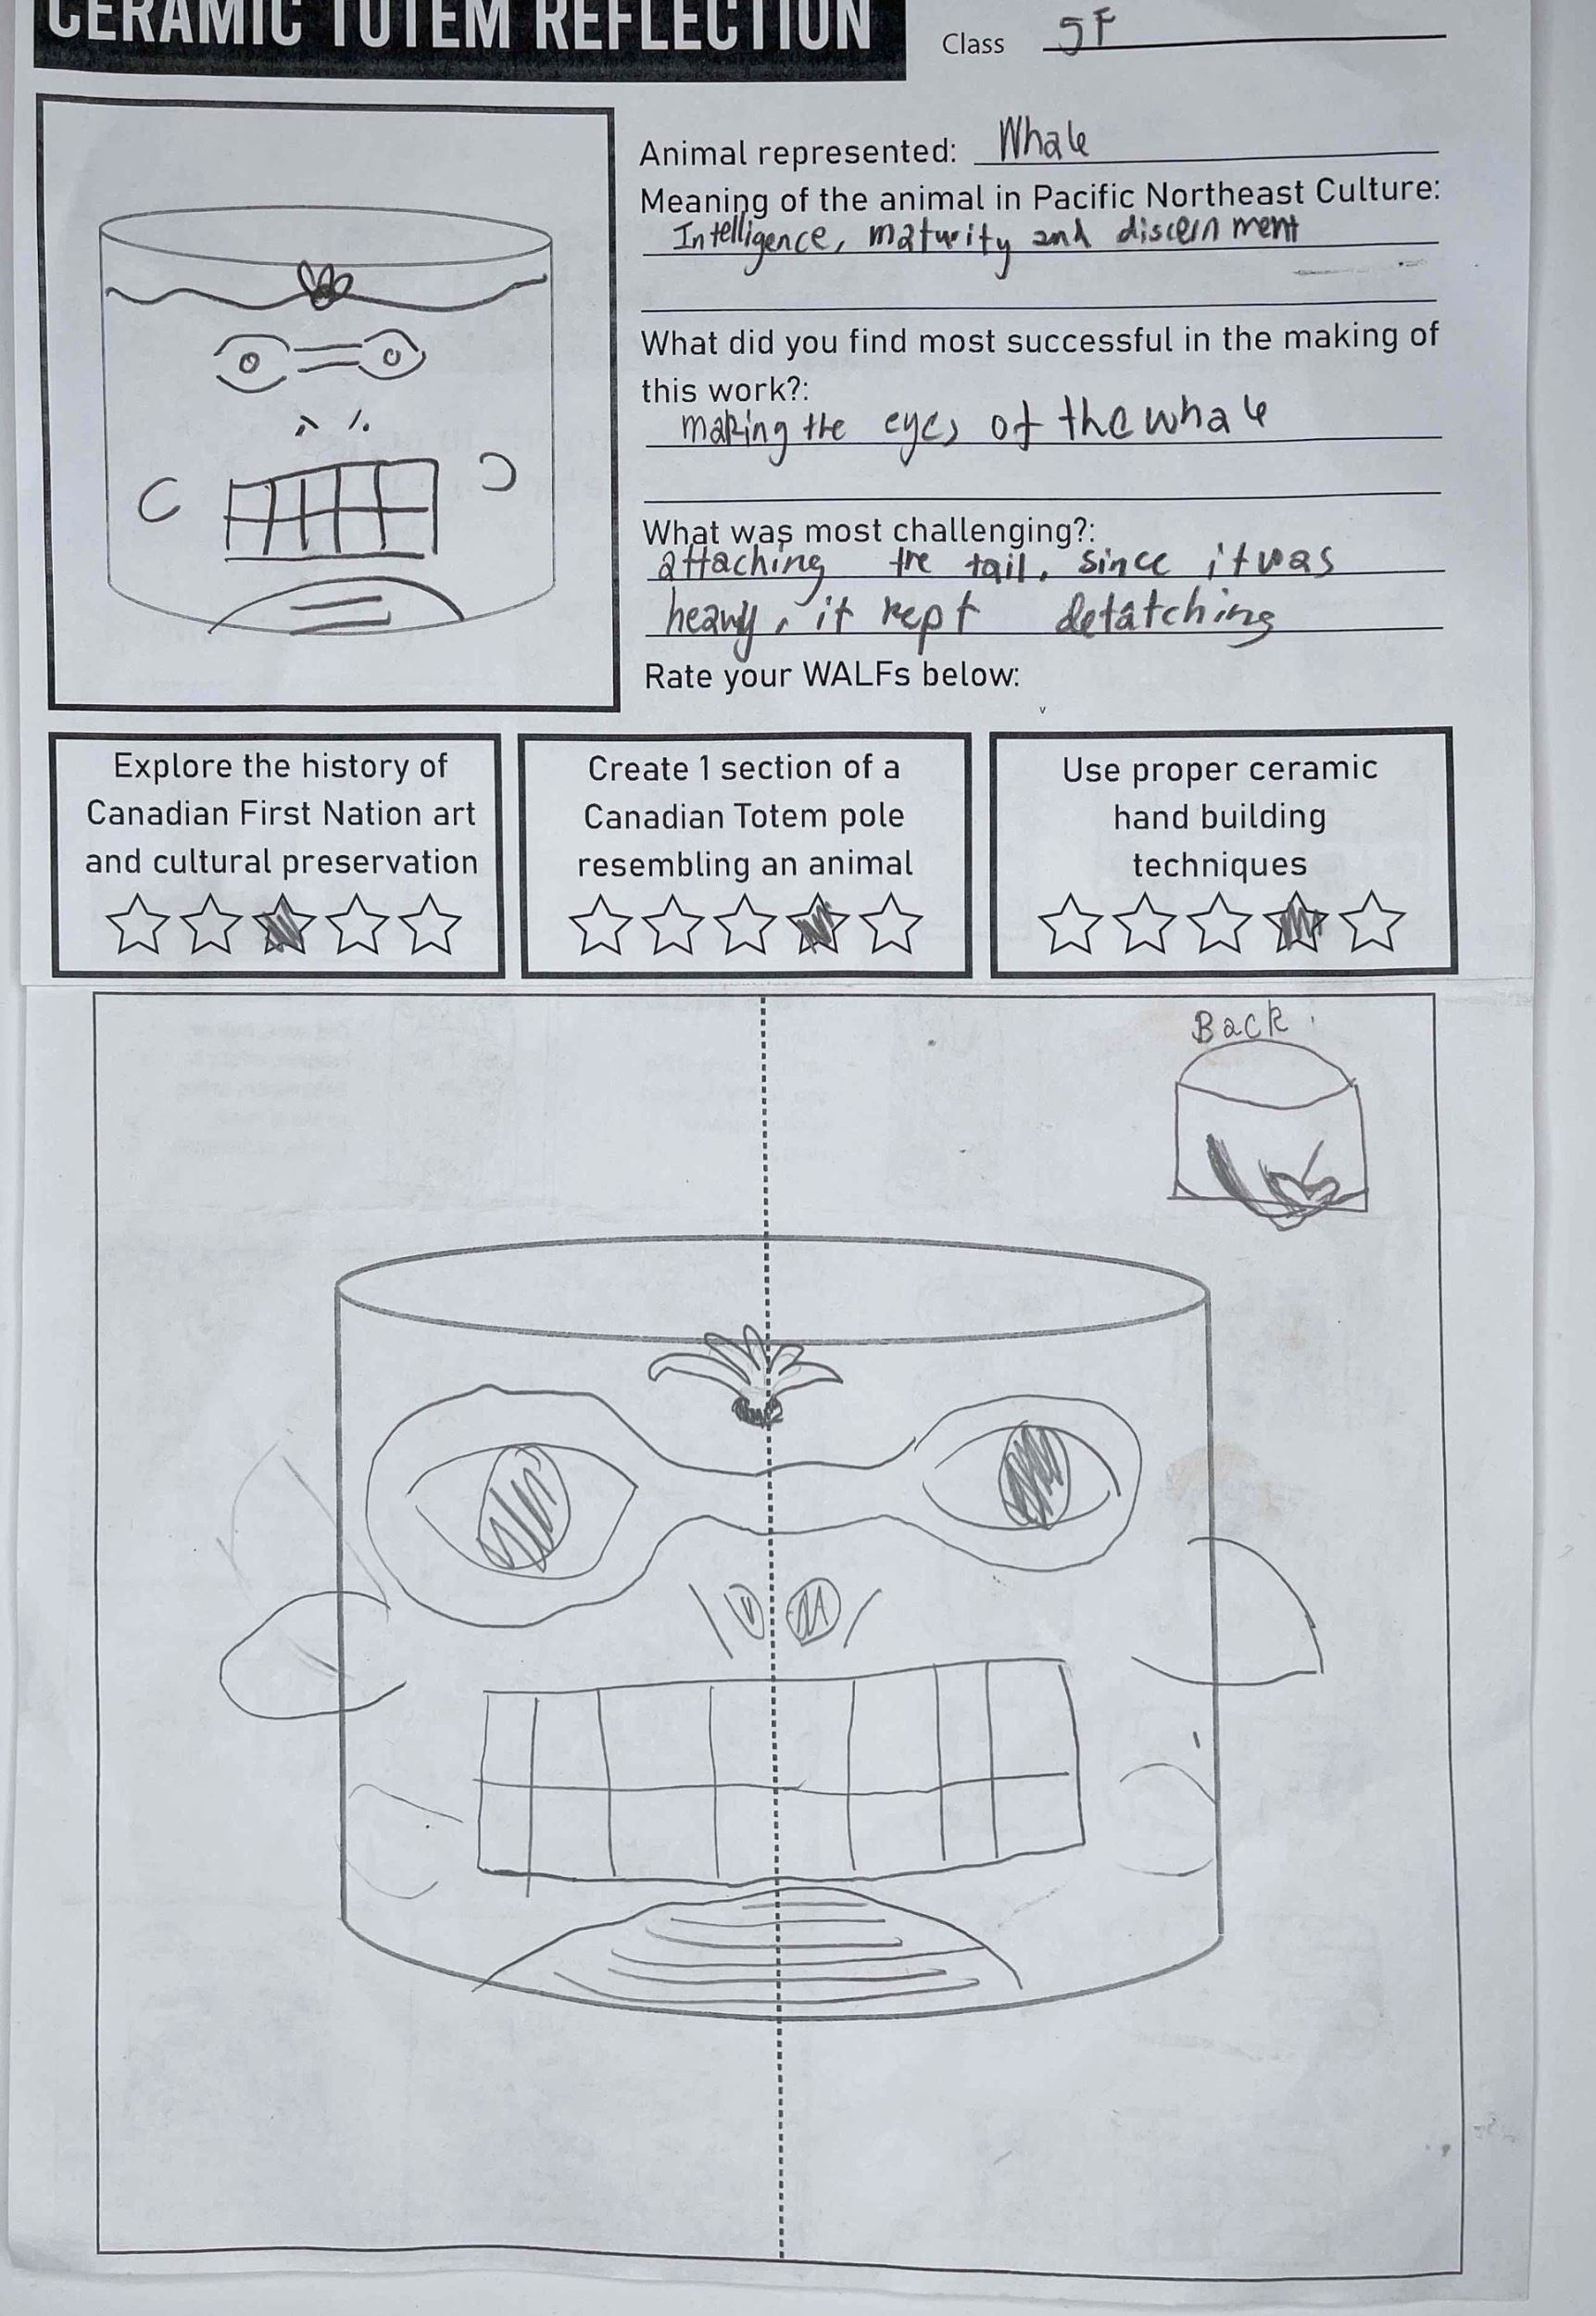 CERAMIC TOTEM REFLECTION
Class 5F
Animal represented: Whale
Meaning of the animal in Pacific Northeast Culture:
Intelligence, maturity and discernment
What did you find most successful in the making of
this work?:
making the eyes of the whale
What was most challenging?:
attaching the tail, since it was
heavy, it kept detatching
Rate your WALFs below:
Explore the history of
Canadian First Nation art
and cultural preservation
Create 1 section of a
Canadian Totem pole
resembling an animal
Use proper ceramic
hand building
techniques
Back